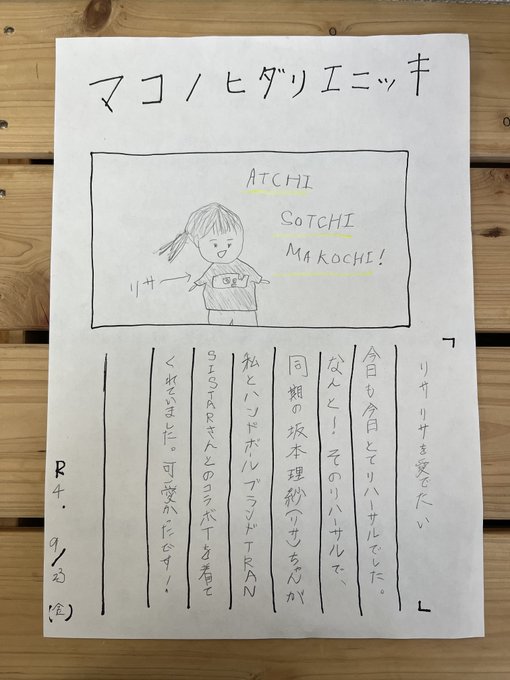 マコノヒダリエニッキ
ATCHI
SOTCHI
MAKOCHI!
リサ→
「リサリサを愛でたい」
今日も今日とてリハーサルでした。
なんと!そのリハーサルで、
同期の坂本理紗(リサ)ちゃんが
私とハンドボルブランドTRAN
SISTARさんとのコラボTを着て
くれていました。可愛かったです!
R4.9/23(金)